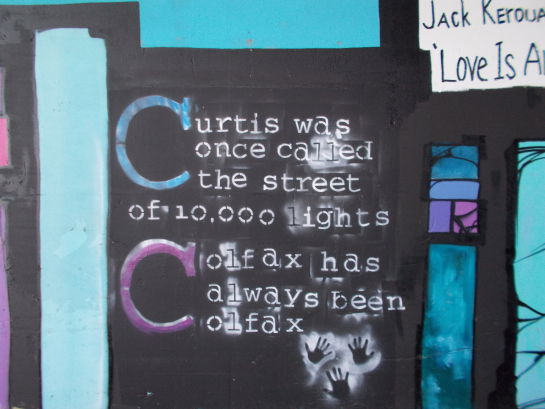 Jack
'Love Is
Curtis was
once called
the street
of 10,000 lights
Colfax has
always been
Colfax